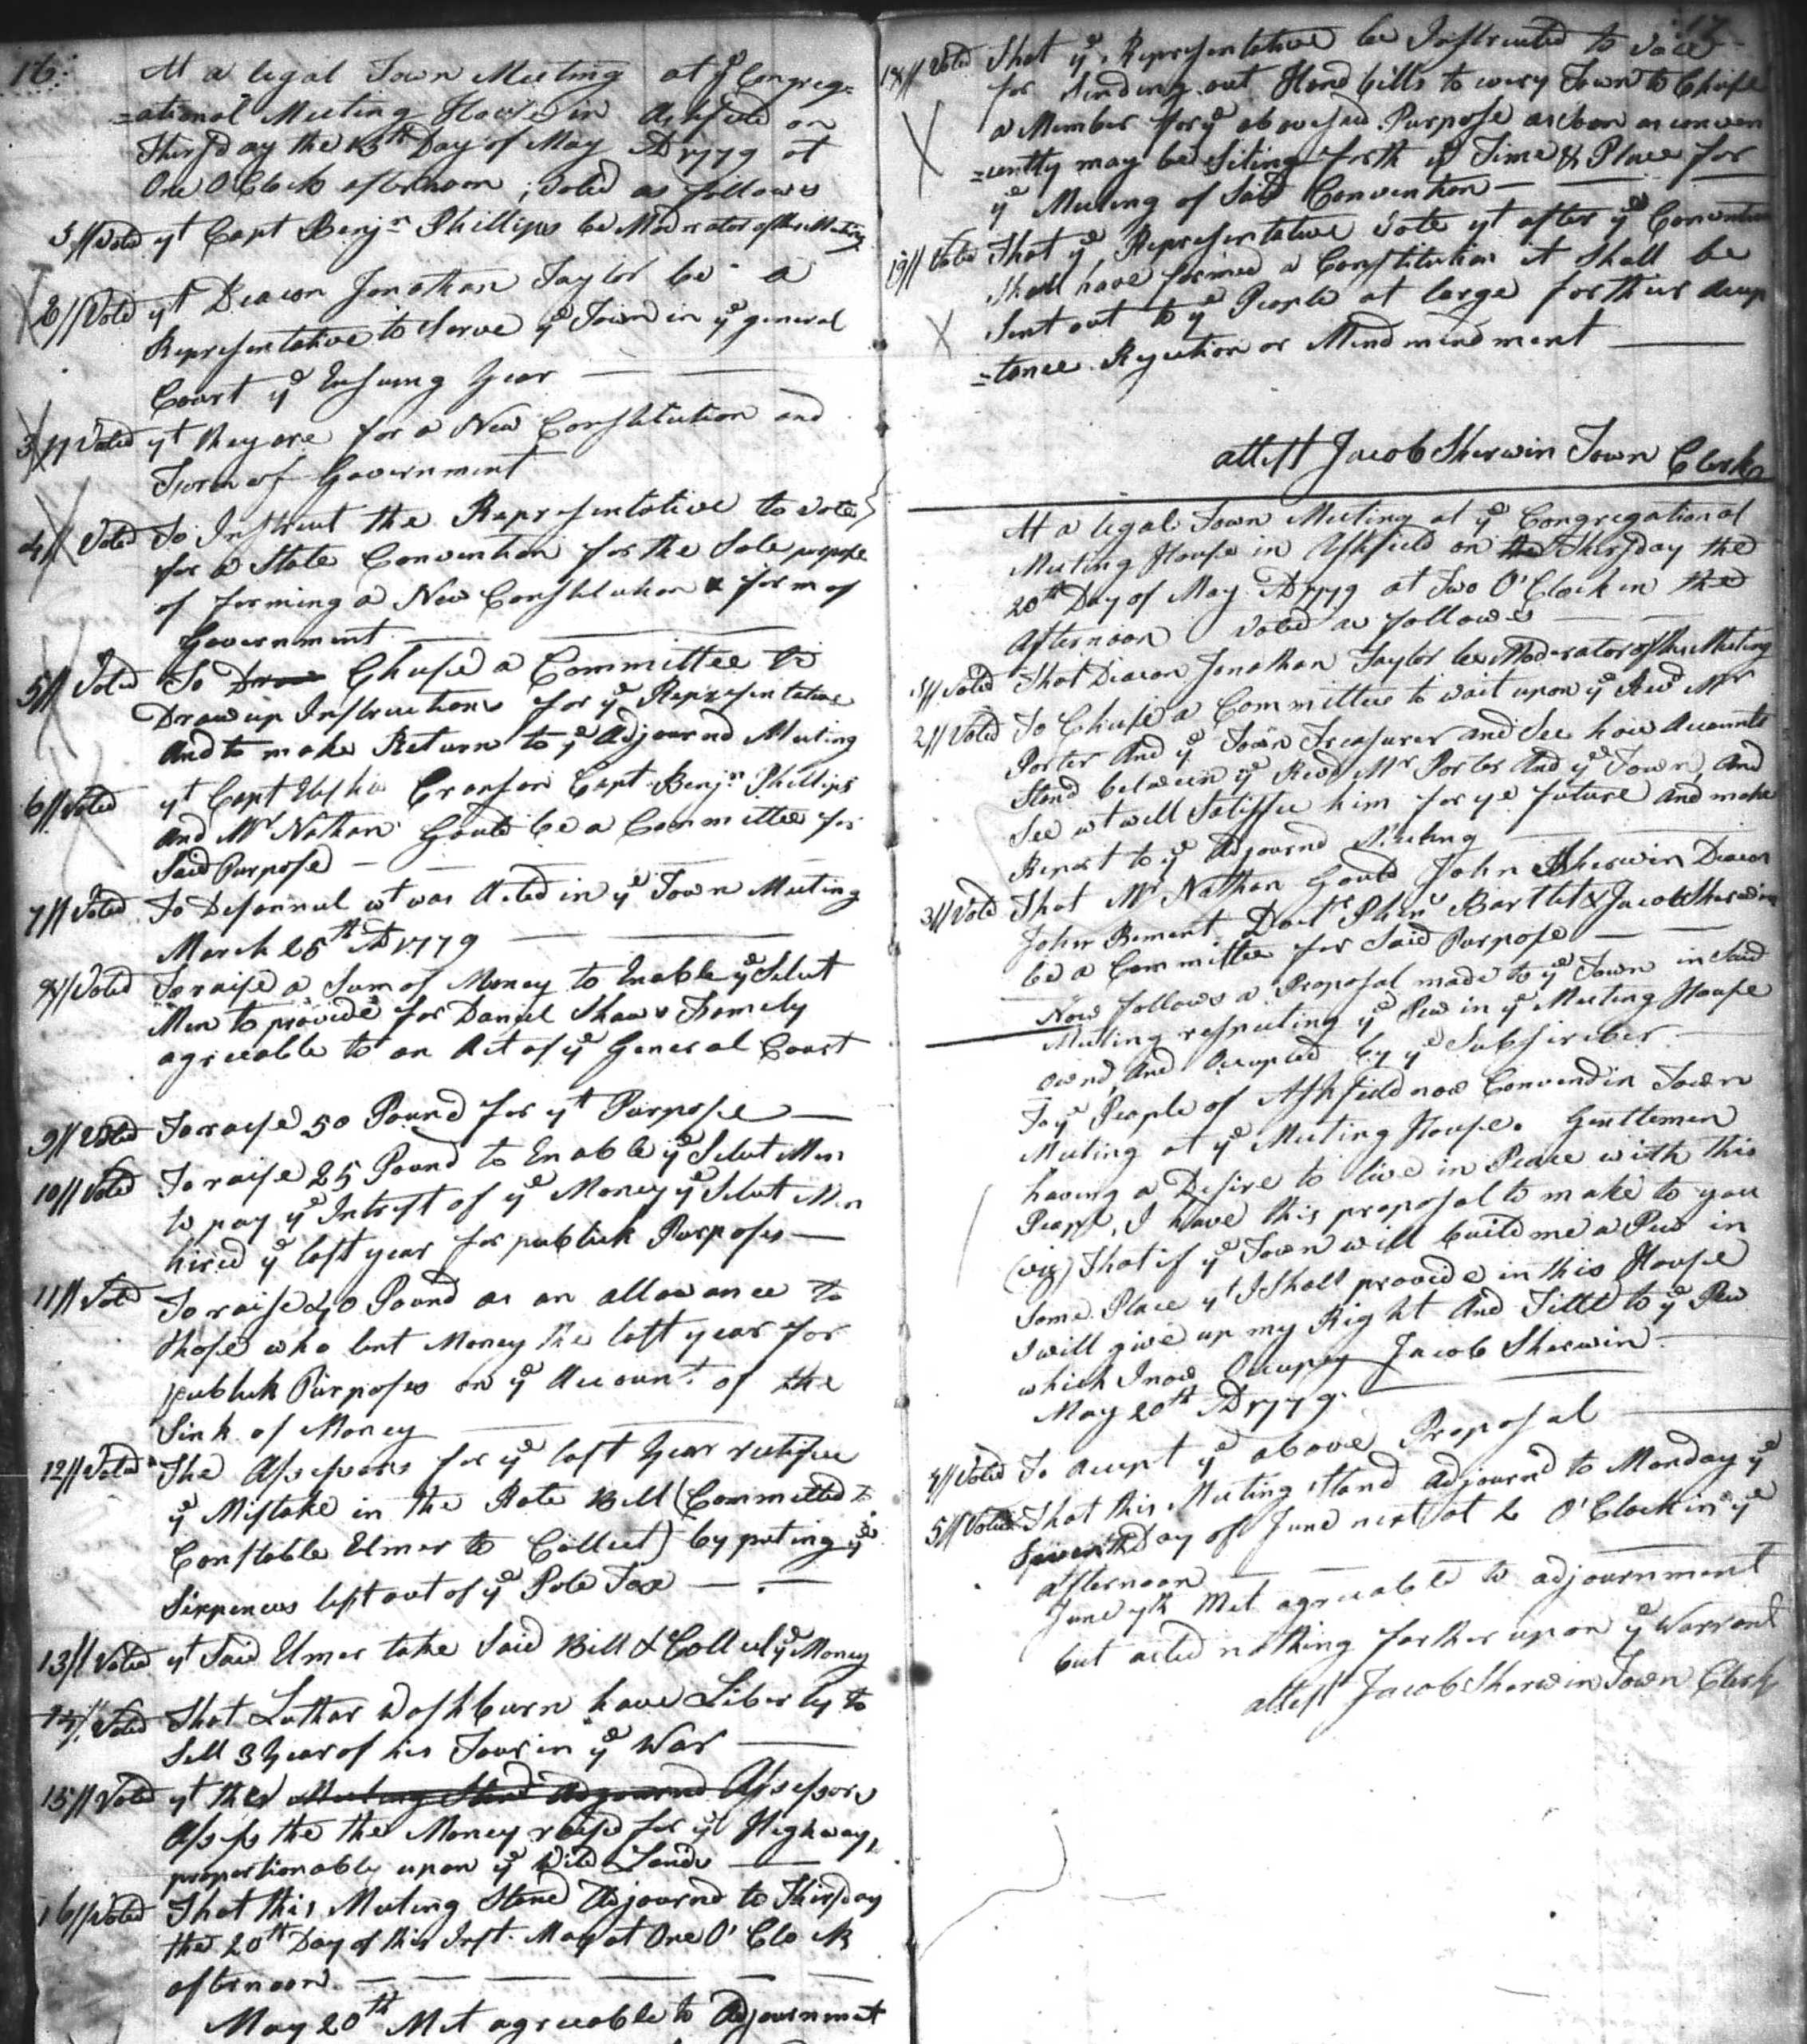 16:
At a legal Town Meeting at ye Congreg=
=ational Meeting House in Ashfield on
Thirsday the 13th Day of May AD 1779 at
One O Clock afternoon; Voted as follows
1// Voted yt Capt Benjn Phillips be Moderator of this Meeting
2// Voted yt Deacon Jonathan Taylor be a
Representative to Serve ye Town in ye general
Court ye Ensuing Year
3// Voted yt they are for a New Constitution and
Form of Government
4// Voted To Instruct the Representative to Vote
for a State Convention for the Sole purpose
of forming a New Constitution & form of
Government
5// Voted To Draw Chuse a Committee to
Draw up Instructions for ye Representative
And to make Return to ye Adjournd Meeting
6// Voted yt Capt Elisha Cranson Capt Benjn Phillips
And Mr Nathan Gould be a Committee for
Said Purpose
7// Voted To Disannul wt was Acted in ye Town Meeting
March 25th AD 1779
8// Voted To raise a Sum of Money to Enable ye Select
Men to provide for Daniel Shaws Famely
agreeable to an Act of ye General Court
9// Voted To raise 50 Pound for yt Purpose
10// Voted To raise 25 Pound to Enable ye Select Men
to pay ye Intrest of ye Money ye Select Men
hired ye last year for publick Purposes
11// Voted To raise 40 Pound as an allowance to
those who lent Money the last year for
publick Purposes on ye Account of the
Sink of Money
12// Voted The Assessors for ye last Year rectifie
ye Mistake in the Rate Bill (Committed to
Constable Elmer to Collect) by puting ye
Sixpences left out of ye Pole Tax
13// Voted yt Said Elmer take Said Bill & Collect ye Money
14// Voted That Luther Washburn have Liberty to
Sell 3 Year of his Tour in ye War
15// Voted yt the Meeting Stand Adjournd Assessors
Assess the the Money raisd for ye Highway,
proportionably upon ye Wild Lands
16// Voted That this Meeting Stand Adjournd to Thirsday
the 20th Day of this Inst. May at One O' Clock
afternoon
May 20th Met agreeable to Adjournment
17
18// Voted That ye Representative be Instructed to Vote
for Sending out Hand bills to every Town to Chuse
a Member for ye abovesaid Purpose as Soon as conven
=iently may be Seting forth ye Time & Place for
ye Meeting of Said Convention
19// Voted That ye Representative Vote yt after ye Convention
Shall have formed a Constitution it Shall be
Sent out to ye People at large for their Accep
=tance Rejection or Mendmendment
attest Jacob Sherwin Town Clerk
At a legal Town Meeting at ye Congregational
Meeting House in Ashfield on the Thirsday the
20th Day of May AD 1779 at Two O' Clock in the
Afternoon Voted as follows
1// Voted That Deacon Jonathan Taylor be Moderator of this Meeting
2// Voted To Chuse a Committee to wait upon ye Revd Mr
Porter And ye Town Treasurer and See how Accounts
Stand between ye Revd Mr Porter And ye Town, And
See wt will Satisfie him for ye future And make
Report to ye Adjournd Meeting
3// Voted That Mr Nathan Gould John Sherwin Deacon
John Bement Doctr Phins Bartlet & Jacob Sherwin
be a Committee for Said Purpose
Now follows a Proposal made to ye Town in Said
Meeting respecting ye Pew in ye Meeting House
ownd And Occupied by ye Subscriber
To ye People of Ashfield now Convend in Town
Meeting at ye Meeting House. Gentlemen
having a Desire to live in Peace with this
People, I have this proposal to make to you
(viz) That if ye Town will build me a Pew in
Some Place yt I Shall provide in this House
I will give up my Right And Title to ye Pew
which I now Occupy Jacob Sherwin
May 20th AD 1779.
4// Voted To accept ye above Proposal
5// Voted That this Meeting Stand Adjournd to Monday ye
Seventh Day of June next at 2 O' Clock in ye
afternoon
June 7th Met agreeable to adjournment
but acted nothing farther upon ye Warrant
attest Jacob Sherwin Town Clerk